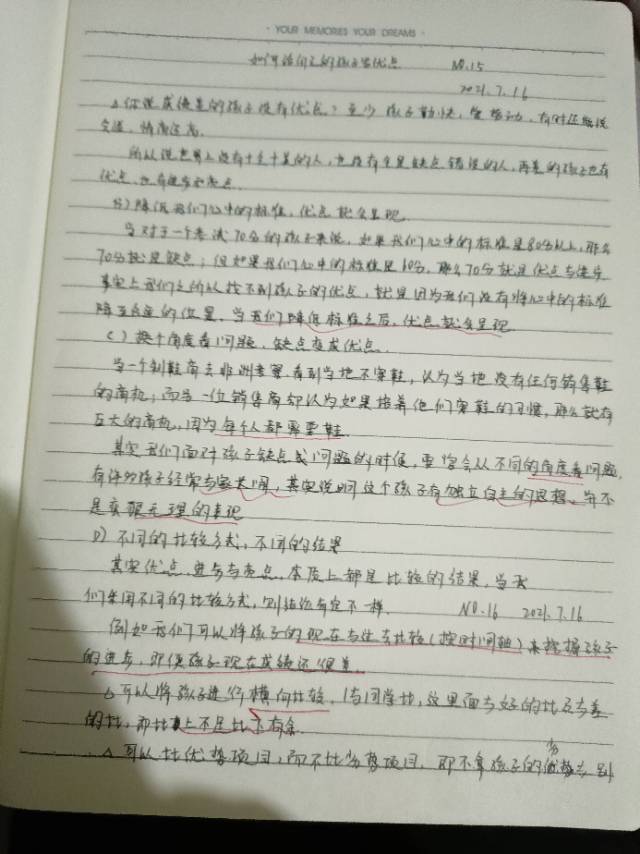 · YOUR MEMORIES YOUR DREAMS ·
如何看自己的孩子的优点 NO.15
2021.7.16
△你说成绩差的孩子没有优点?至少孩子勤快,爱劳动,有时还能说
会道,情商还高.
所以说世界上没有十全十美的人,也没有全是缺点错误的人,再差的孩子也有
优点,也有进步和亮点.
B)降低我们心中的标准,优点就会呈现.
当对于一个考试70分的孩子来说,如果我们心中的标准是80分以上,那么
70分就是缺点;但如果我们心中的标准是60分,那么70分就是优点与进步
事实上我们之所以找不到孩子的优点,就是因为我们没有将心中的标准
降至合适的位置,当我们降低标准之后,优点就会呈现
C)换个角度看问题,缺点变成优点.
当一个制鞋商去非洲考察,看到当地不穿鞋,认为当地没有任何销售鞋
的商机;而另一位销售商却认为如果培养他们穿鞋的习惯,那么就有
巨大的商机,因为每个人都需要鞋.
其实我们面对孩子缺点或问题的时候,要学会从不同的角度看问题,
有许的孩子经常与家长顶,其实说明这个孩子有独立自主的思想,并不
是蛮狠无理的表现
D)不同的比较方式,不同的结果
其实优点、进步与亮点,本质上都是比较的结果,当我
们采用不同的比较方式,则结论肯定不一样. NO.16 2021.7.16
例如我们可以将孩子的现在与过去比较(按时间轴)来挖掘孩子
的进步,即使孩子现在成绩还很差.
△可以将孩子进行横向比较,1与同学比,这里面与好的比及与差
的比,即比上不足比下有余.
△可以比优势项目,而不比劣势项目,即不拿孩子的劣势与别